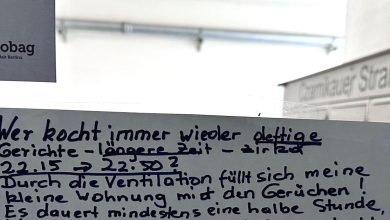 obag
Czarnikauer Stra
Wer kocht immer wieder deftige
Gerichte – längere Zeit – zirka
22.15 → 22.50?
Durch die Ventilation füllt sich meine
kleine Wohnung mit den Gerüchen!
Es dauert mindestens eine halbe Stunde